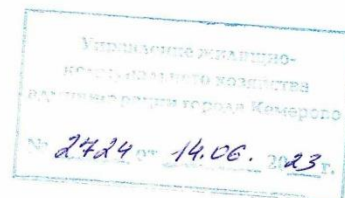 Управление жилищно-
коммунального хозяйства
администрации города Кемерово
№ 2724 от 14.06. 2023 г.